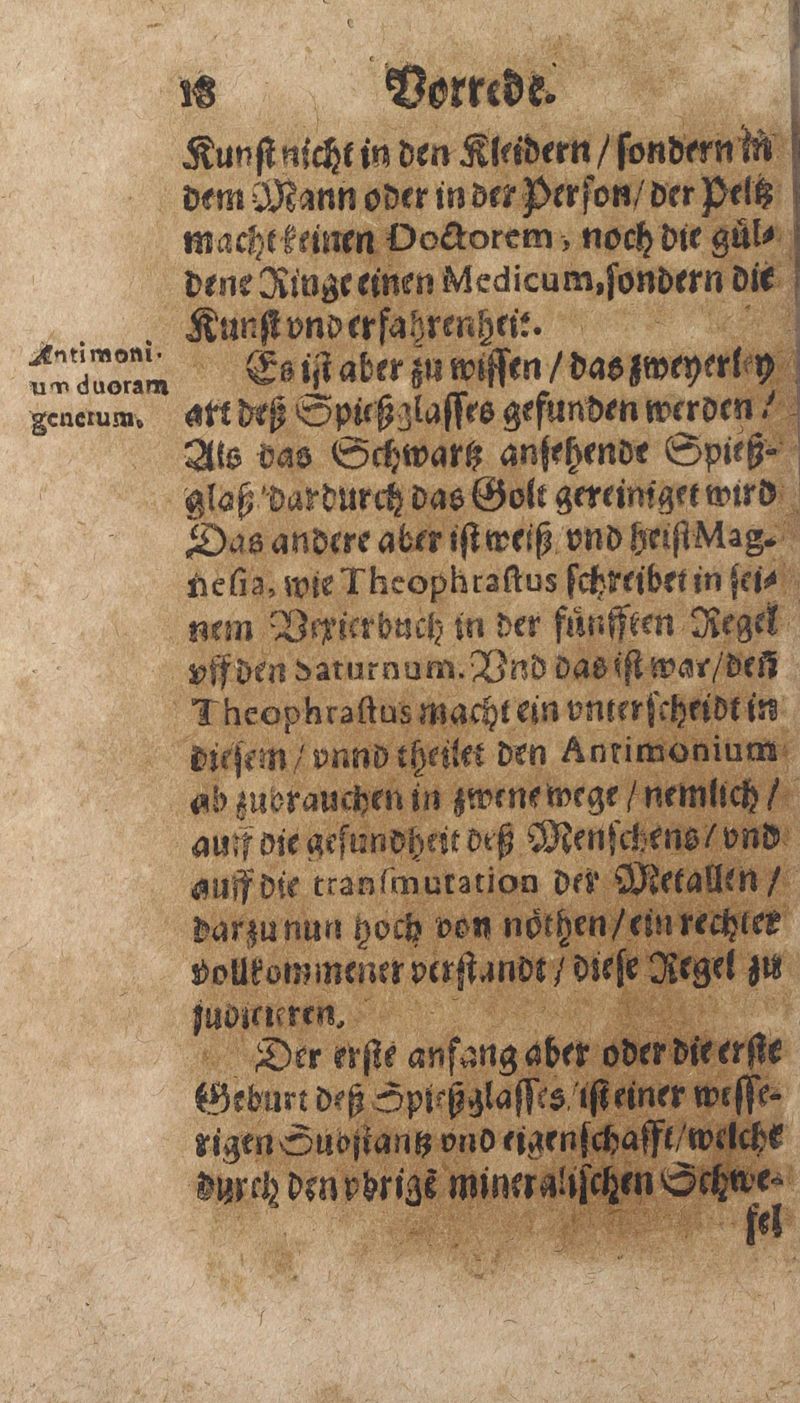 18 Vorrede.
Kunst nicht in den Kleidern / sondern in
dem Mann oder in der Person / der Peltz
macht keinen Doctorem, noch die gül-
dene Ringe einen Medicum, sondern die
Kunst vnd erfahrenheit.
Antimoni-
um duoram
generum.
Es ist aber zu wissen / das zweyerley
art deß Spießglasses gefunden werden /
Als das Schwartz ansehende Spieß-
glaß dardurch das Golt gereiniget wird
Das andere aber ist weiß vnd heist Mag-
nesia, wie Theophrastus schreibet in sei-
nem Vexierbuch in der fünfften Regel
vff den Saturnum. Vnd das ist war / deñ
Theophrastus macht ein vnterscheidt in
diesem / vnnd theilet den Antimonium
ab zubrauchen in zwene wege / nemlich /
auff die gesundheit deß Menschens / vnd
auff die transmutation der Metallen /
darzu nun hoch von nöthen / ein rechter
vollkommener verstandt / diese Regel zu
judicieren.
Der erste anfang aber oder die erste
Geburt deß Spießglasses / ist einer wesse-
rigen Substantz vnd eigenschafft / welche
durch den vbrigẽ mineralischen Schwe-
fel